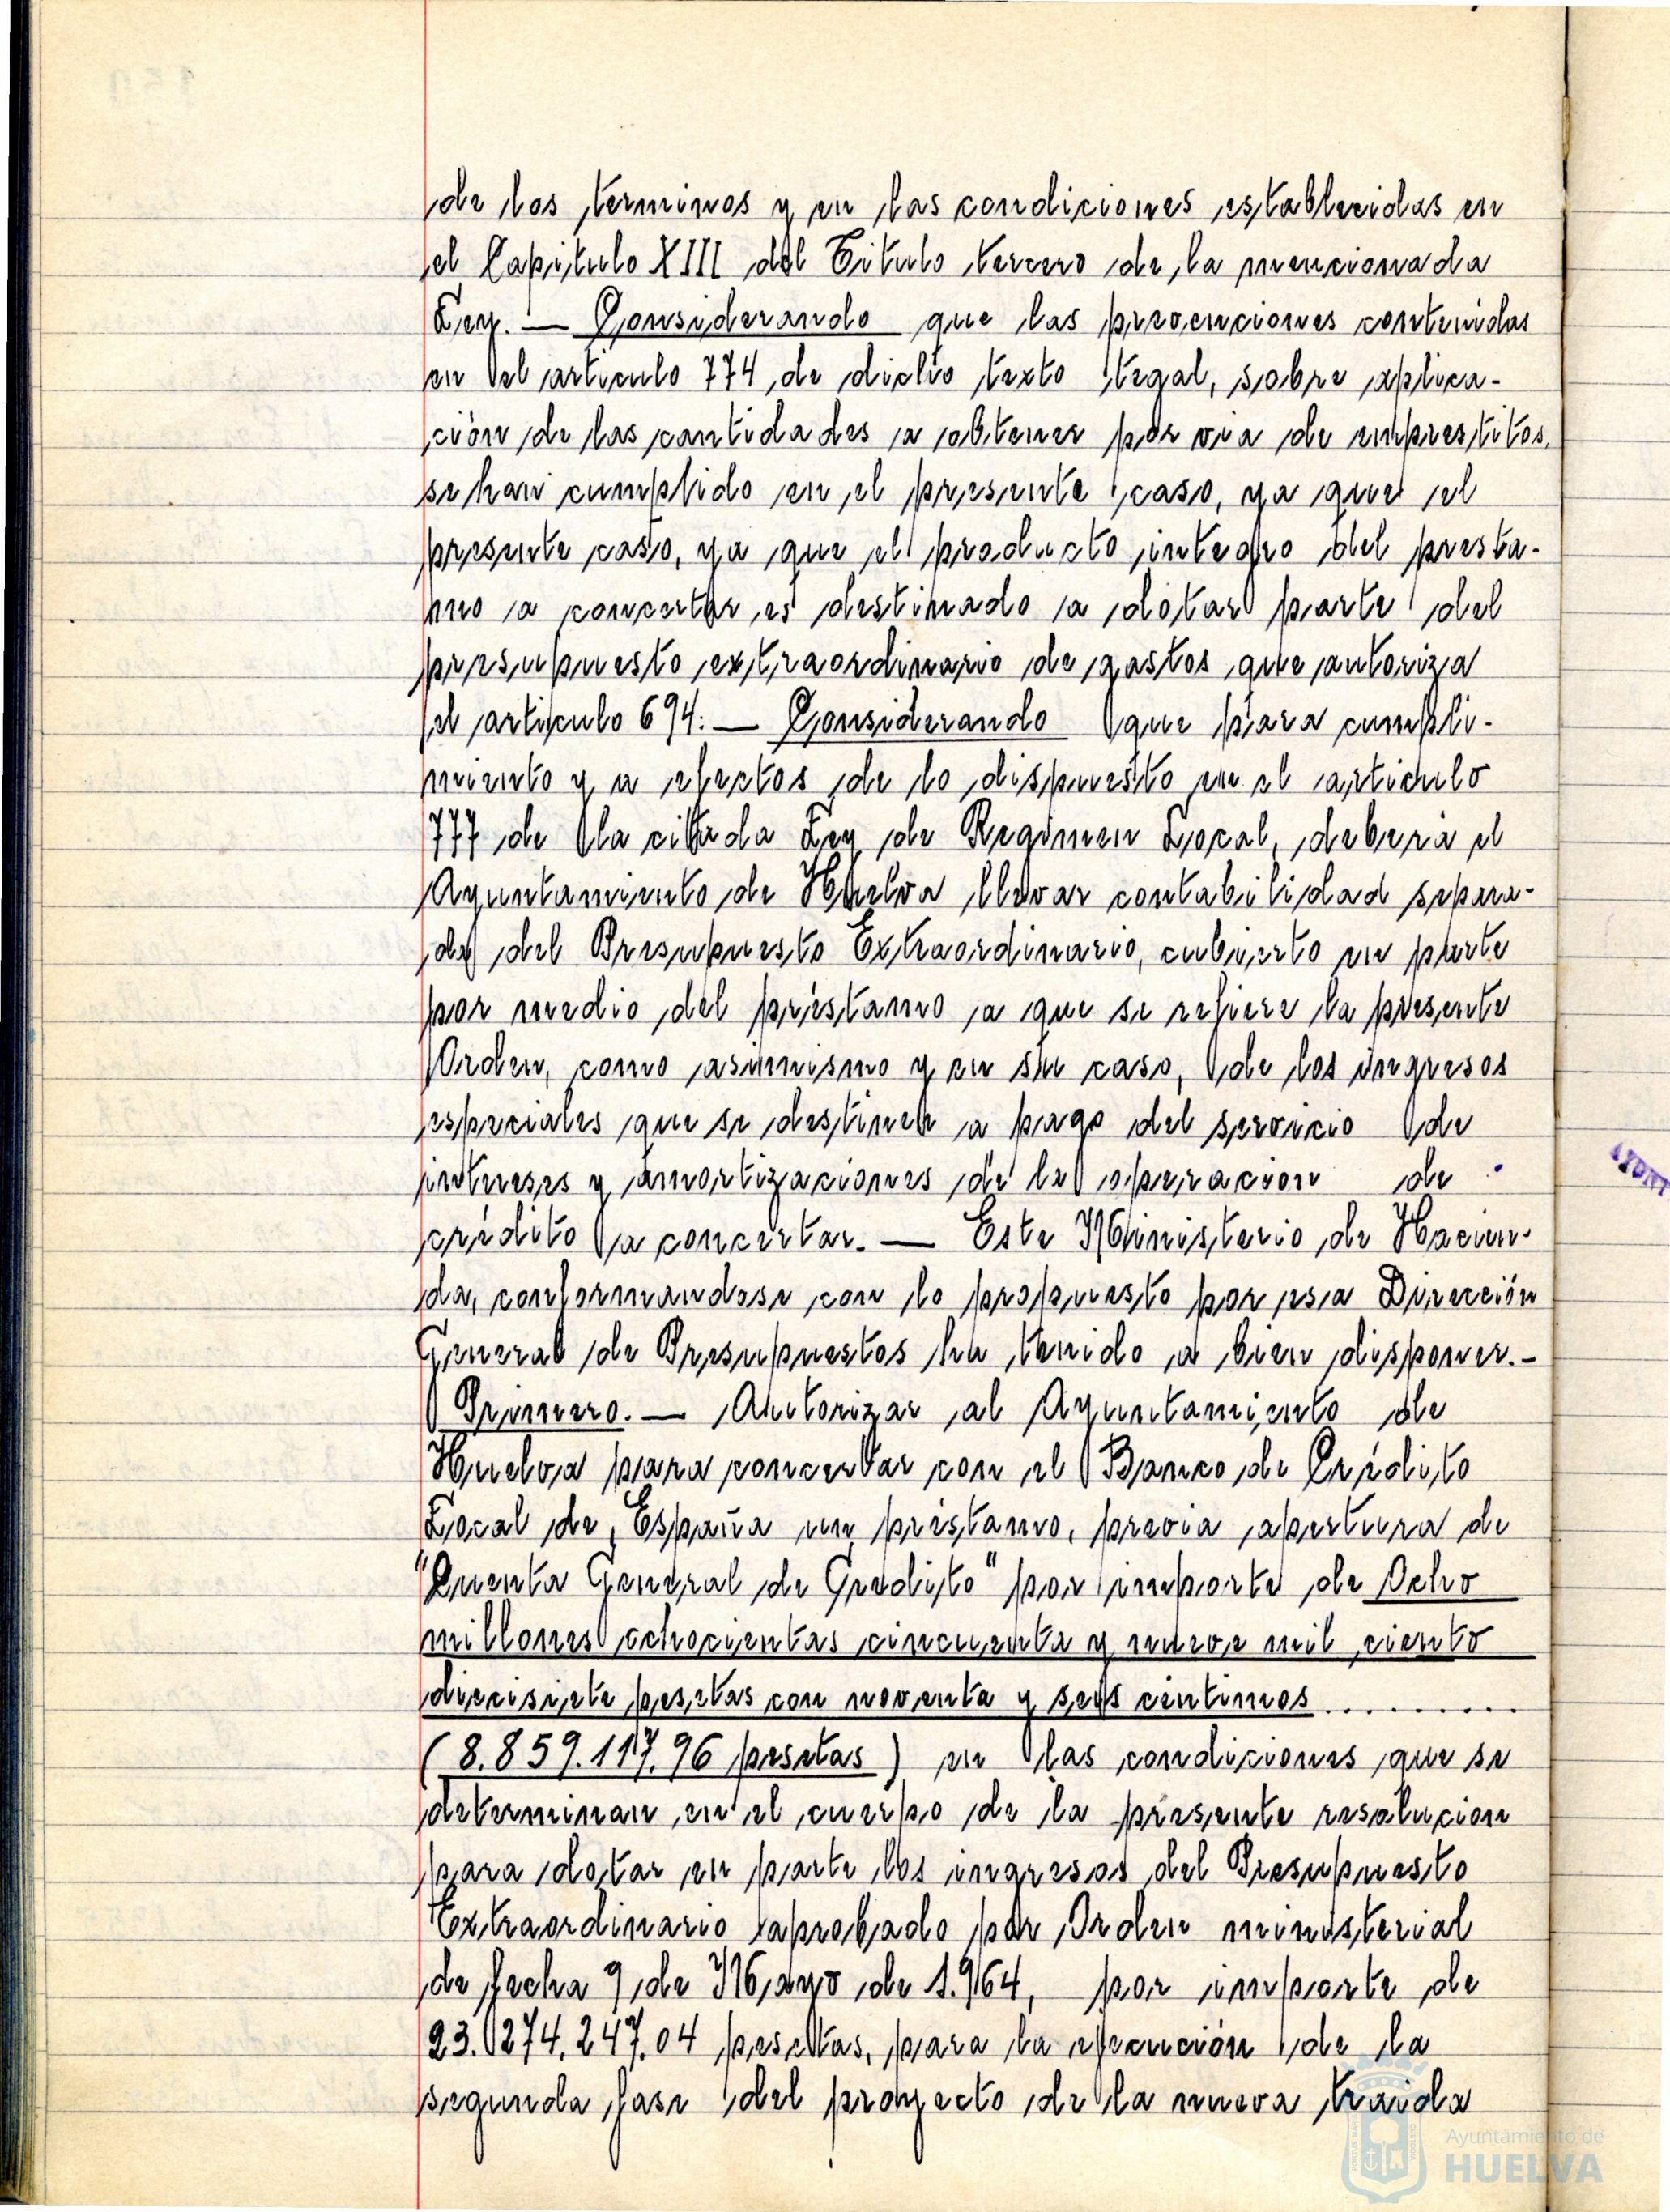 de los terminos y en las condiciones establecidas en
el Capitulo XIII del Titulo tercero de la mencionada
Ley. — Considerando que las prevenciones contenidas
en el articulo 774 de dicho texto legal, sobre aplica-
ción de las cantidades a obtener por via de emprestitos,
se han cumplido en el presente caso, ya que el
presente caso, ya que el producto integro del presta-
mo a concertar es destinado a dotar parte del
presupuesto extraordinario de gastos que autoriza
el articulo 694: — Considerando que para cumpli-
miento y a efectos de lo dispuesto en el articulo
777 de la citada Ley de Regimen Local, debera el
Ayuntamiento de Huelva llevar contabilidad separa-
da del Presupuesto Extraordinario, cubierto en parte
por medio del préstamo a que se refiere la presente
Orden, como asimismo y en su caso, de los ingresos
especiales que se destinen a pago del servicio de
intereses y amortizaciones de la operacion de
crédito a concertar. — Este Ministerio de Hacien-
da, conformandose con lo propuesto por esa Dirección
General de Presupuestos ha tenido a bien disponer.-
Primero. — Autorizar al Ayuntamiento de
Huelva para concertar con el Banco de Crédito
Local de España un préstamo, previa apertura de
"Cuenta General de Credito" por importe de Ocho
millones ochocientas cincuenta y nueve mil ciento
diecisiete pesetas con noventa y seis centimos .........
(8.859.117.96 pesetas) en las condiciones que se
determinan en el cuerpo de la presente resolucion
para dotar en parte los ingresos del Presupuesto
Extraordinario aprobado por Orden ministerial
de fecha 9 de Mayo de 1.964, por importe de
23.274.247.04 pesetas, para la ejecución de la
segunda fase del proyecto de la nueva traida
Ayuntamiento de
HUELVA